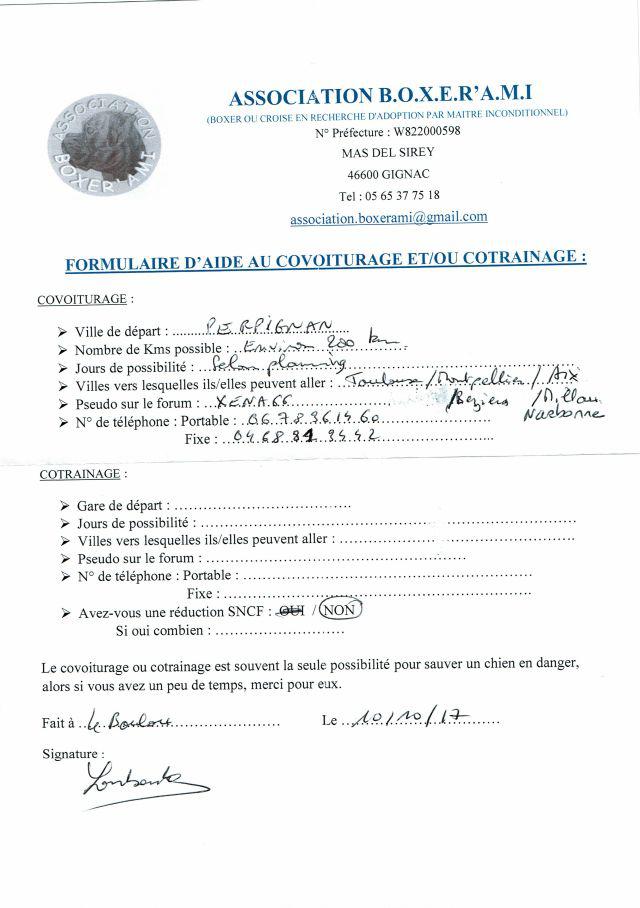 ASSOCIATION BOXER'AMI
ASSOCIATION B.O.X.E.R'A.M.I
(BOXER OU CROISE EN RECHERCHE D'ADOPTION PAR MAITRE INCONDITIONNEL)
N° Préfecture : W822000598
MAS DEL SIREY
46600 GIGNAC
Tel : 05 65 37 75 18
association.boxerami@gmail.com
FORMULAIRE D'AIDE AU COVOITURAGE ET/OU COTRAINAGE :
COVOITURAGE :
➢ Ville de départ : PERPIGNAN
➢ Nombre de Kms possible : Environ 200 km
➢ Jours de possibilité : Selon planning
➢ Villes vers lesquelles ils/elles peuvent aller : Toulouse/Montpellier/Aix
/Béziers /Millau
Narbonne
➢ Pseudo sur le forum : XENA66
➢ N° de téléphone : Portable : 06.78.36.14.60
Fixe : 04.68.81.34.42
COTRAINAGE :
➢ Gare de départ :
➢ Jours de possibilité :
➢ Villes vers lesquelles ils/elles peuvent aller :
➢ Pseudo sur le forum :
➢ N° de téléphone : Portable :
Fixe :
➢ Avez-vous une réduction SNCF : OUI / NON
Si oui combien :
Le covoiturage ou cotrainage est souvent la seule possibilité pour sauver un chien en danger,
alors si vous avez un peu de temps, merci pour eux.
Fait à Le Boulou Le 10/10/17
Signature :